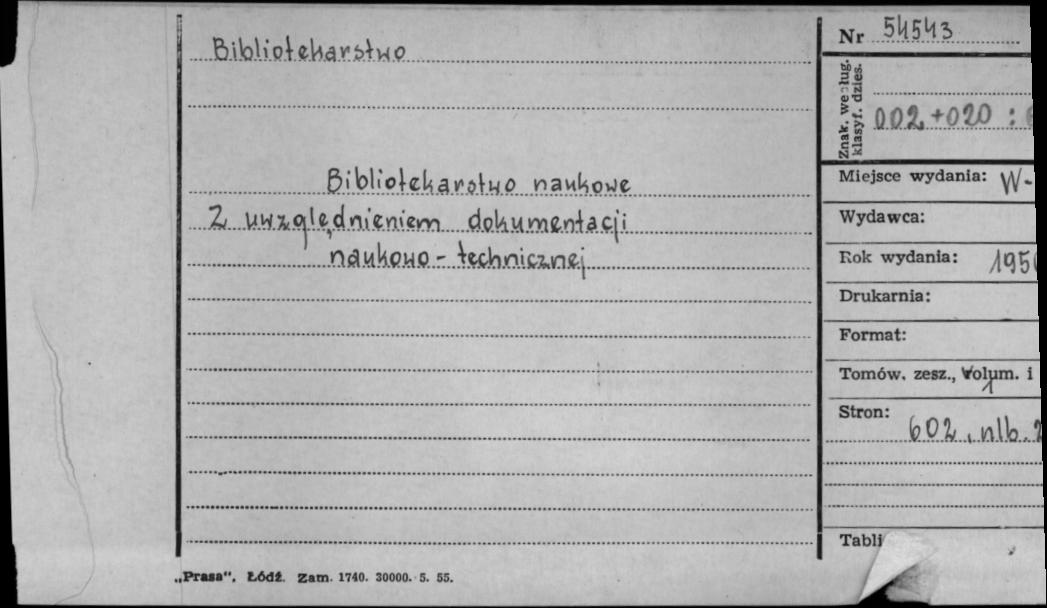 Bibliotekarstwo
Bibliotekarstwo naukowe
z uwzględnieniem dokumentacji
naukowo-technicznej
„Prasa”, Łódź. Zam. 1740. 30000. 5. 55.
Nr 54543
Znak. według. klasyf. dzies.
002+020 :
Miejsce wydania: W-
Wydawca:
Rok wydania: 195
Drukarnia:
Format:
Tomów. zesz., wolum. i
1
Stron:
602, nlb. 2
Tabli